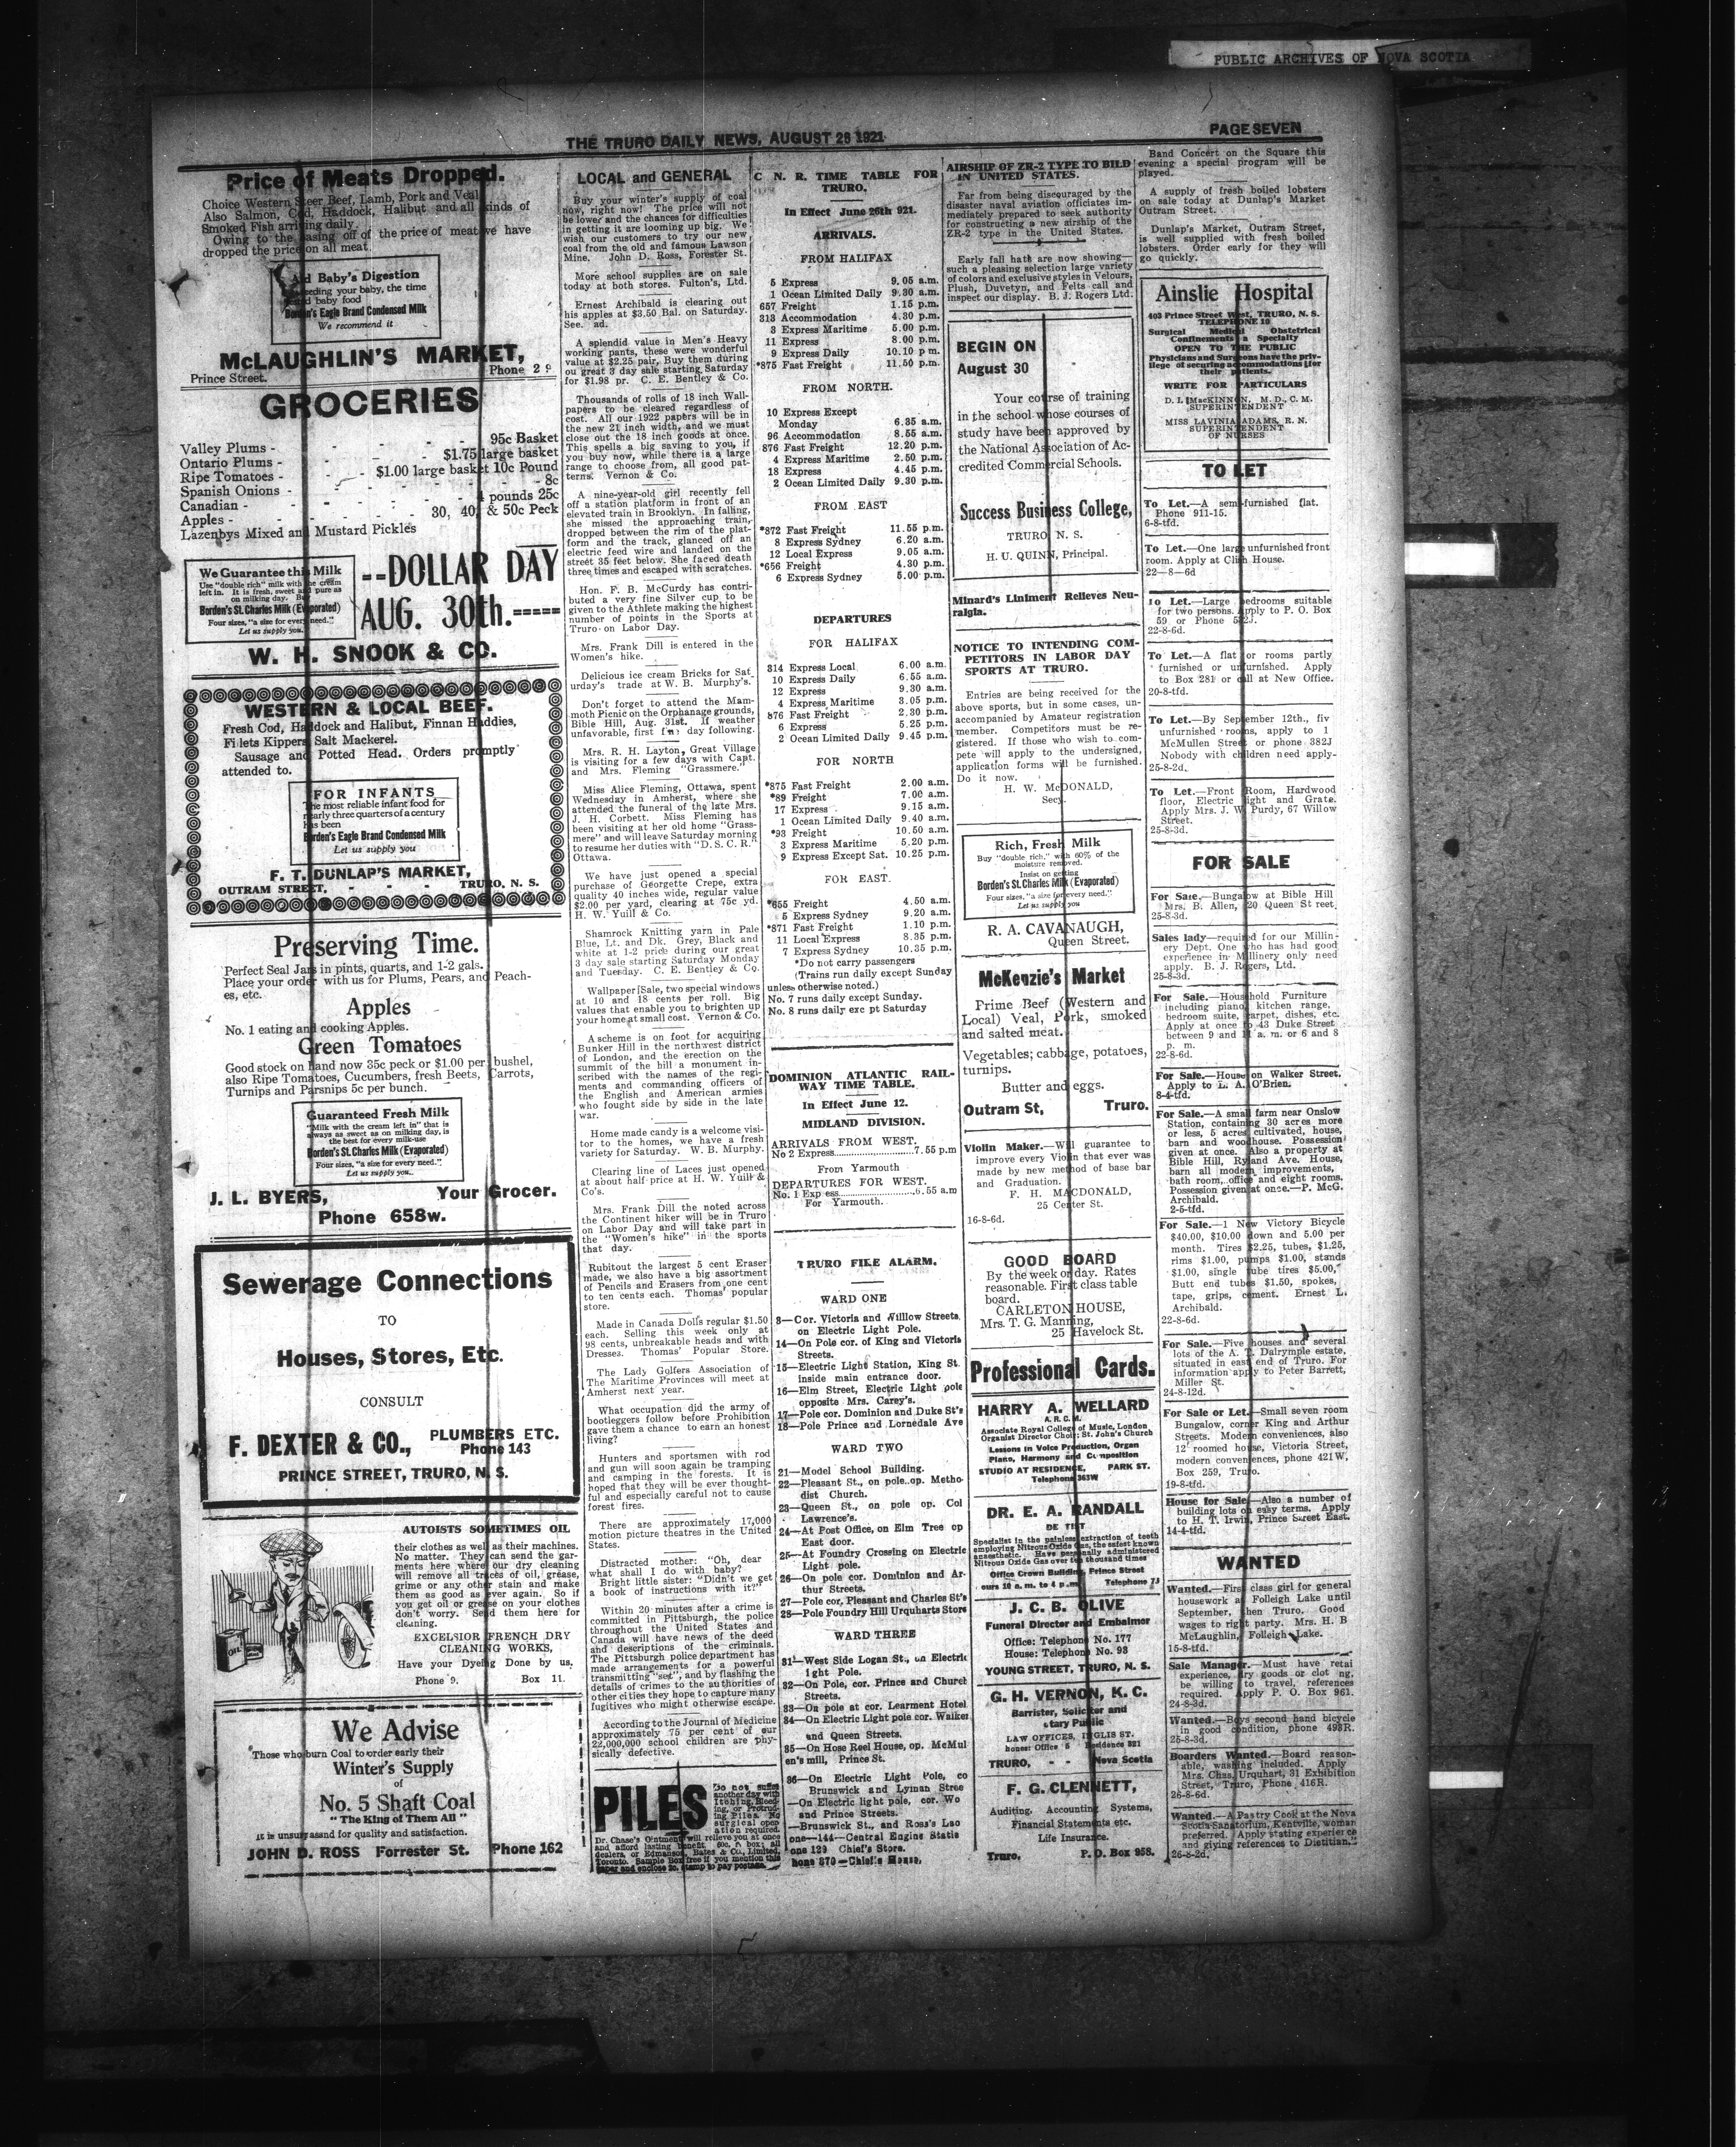 PUBLIC ARCHIVES OF NOVA SCOTIA
THE TRURO DAILY NEWS, AUGUST 26 1921
PAGE SEVEN
Price of Meats Dropped.
Choice Western Steer Beef, Lamb, Pork and Veal
Also Salmon, Cod, Haddock, Halibut and all kinds of
Smoked Fish arriving daily.
Owing to the easing off of the price of meat we have
dropped the price on all meat.
Aid Baby's Digestion
feeding your baby, the time
tested baby food
Borden's Eagle Brand Condensed Milk
We recommend it
McLAUGHLIN'S MARKET,
Prince Street.
Phone 2
GROCERIES
Valley Plums - 95c Basket
Ontario Plums - $1.75 large basket
Ripe Tomatoes - $1.00 large basket 10c Pound
Spanish Onions - 8c
Canadian - 4 pounds 25c
Apples - 30, 40, & 50c Peck
Lazenbys Mixed and Mustard Pickles
We Guarantee this Milk
Use "double rich" milk with the cream
left in. It is fresh, sweet and pure as
on milking day. Buy
Borden's St. Charles Milk (Evaporated)
Four sizes, "a size for every need."
Let us supply you.
--DOLLAR DAY
AUG. 30th.=====
W. H. SNOOK & CO.
WESTERN & LOCAL BEEF.
Fresh Cod, Haddock and Halibut, Finnan Haddies,
Fillets Kippers Salt Mackerel.
Sausage and Potted Head. Orders promptly
attended to.
FOR INFANTS
The most reliable infant food for
nearly three quarters of a century
has been
Borden's Eagle Brand Condensed Milk
Let us supply you
F. T. DUNLAP'S MARKET,
OUTRAM STREET, - - - TRURO, N. S.
Preserving Time.
Perfect Seal Jars in pints, quarts, and 1-2 gals.
Place your order with us for Plums, Pears, and Peach-
es, etc.
Apples
No. 1 eating and cooking Apples.
Green Tomatoes
Good stock on hand now 35c peck or $1.00 per bushel,
also Ripe Tomatoes, Cucumbers, fresh Beets, Carrots,
Turnips and Parsnips 5c per bunch.
Guaranteed Fresh Milk
"Milk with the cream left in" that is
always as sweet as on milking day, is
the best for every milk-use
Borden's St. Charles Milk (Evaporated)
Four sizes, "a size for every need."
Let us supply you.
J. L. BYERS, Your Grocer.
Phone 658w.
Sewerage Connections
TO
Houses, Stores, Etc.
CONSULT
F. DEXTER & CO., PLUMBERS ETC.
Phone 143
PRINCE STREET, TRURO, N. S.
AUTOISTS SOMETIMES OIL
their clothes as well as their machines.
No matter. They can send the gar-
ments here where our dry cleaning
will remove all traces of oil, grease,
grime or any other stain and make
them as good as ever again. So if
you get oil or grease on your clothes
don't worry. Send them here for
cleaning.
EXCELSIOR FRENCH DRY
CLEANING WORKS,
Have your Dyeing Done by us.
Phone 9. Box 11.
OIL
We Advise
Those who burn Coal to order early their
Winter's Supply
of
No. 5 Shaft Coal
"The King of Them All"
It is unsurpassand for quality and satisfaction.
JOHN D. ROSS Forrester St. Phone 162
LOCAL and GENERAL
Buy your winter's supply of coal
now, right now! The price will not
be lower and the chances for difficulties
in getting it are looming up big. We
wish our customers to try our new
coal from the old and famous Lawson
Mine. John D. Ross, Forester St.
More school supplies are on sale
today at both stores. Fulton's, Ltd.
Ernest Archibald is clearing out
his apples at $3.50 Bal. on Saturday.
See. ad.
A splendid value in Men's Heavy
working pants, these were wonderful
value at $2.25 pair, Buy them during
ou great 3 day sale starting Saturday
for $1.98 pr. C. E. Bentley & Co.
Thousands of rolls of 18 inch Wall-
papers to be cleared regardless of
cost. All our 1922 papers will be in
the new 21 inch width, and we must
close out the 18 inch goods at once.
This spells a big saving to you, if
you buy now, while there is a large
range to choose from, all good pat-
terns. Vernon & Co.
A nine-year-old girl recently fell
off a station platform in front of an
elevated train in Brooklyn. In falling,
she missed the approaching train,
dropped between the rim of the plat-
form and the track, glanced off an
electric feed wire and landed on the
street 35 feet below. She faced death
three times and escaped with scratches.
Hon. F. B. McCurdy has contri-
buted a very fine Silver cup to be
given to the Athlete making the highest
number of points in the Sports at
Truro on Labor Day.
Mrs. Frank Dill is entered in the
Women's hike.
Delicious ice cream Bricks for Sat-
urday's trade at W. B. Murphy's.
Don't forget to attend the Mam-
moth Picnic on the Orphanage grounds,
Bible Hill, Aug. 31st. If weather
unfavorable, first fine day following.
Mrs. R. H. Layton, Great Village
is visiting for a few days with Capt.
and Mrs. Fleming "Grassmere."
Miss Alice Fleming, Ottawa, spent
Wednesday in Amherst, where she
attended the funeral of the late Mrs.
J. H. Corbett. Miss Fleming has
been visiting at her old home "Grass-
mere" and will leave Saturday morning
to resume her duties with "D. S. C. R."
Ottawa.
We have just opened a special
purchase of Georgette Crepe, extra
quality 40 inches wide, regular value
$2.00 per yard, clearing at 75c yd.
H. W. Yuill & Co.
Shamrock Knitting yarn in Pale
Blue, Lt. and Dk. Grey, Black and
white at 1-2 price during our great
3 day sale starting Saturday Monday
and Tuesday. C. E. Bentley & Co.
Wallpaper Sale, two special windows
at 10 and 18 cents per roll. Big
values that enable you to brighten up
your home at small cost. Vernon & Co.
A scheme is on foot for acquiring
Bunker Hill in the northwest district
of London, and the erection on the
summit of the hill a monument in-
scribed with the names of the regi-
ments and commanding officers of
the English and American armies
who fought side by side in the late
war.
Home made candy is a welcome visi-
tor to the homes, we have a fresh
variety for Saturday. W. B. Murphy.
Clearing line of Laces just opened
at about half price at H. W. Yuill &
Co's.
Mrs. Frank Dill the noted across
the Continent hiker will be in Truro
on Labor Day and will take part in
the "Women's hike" in the sports
that day.
Rubitout the largest 5 cent Eraser
made, we also have a big assortment
of Pencils and Erasers from one cent
to ten cents each. Thomas' popular
store.
Made in Canada Dolls regular $1.50
each. Selling this week only at
98 cents, unbreakable heads and with
Dresses. Thomas' Popular Store.
The Lady Golfers Association of
The Maritime Provinces will meet at
Amherst next year.
What occupation did the army of
bootleggers follow before Prohibition
gave them a chance to earn an honest
living?
Hunters and sportsmen with rod
and gun will soon again be tramping
and camping in the forests. It is
hoped that they will be ever thought-
ful and especially careful not to cause
forest fires.
There are approximately 17,000
motion picture theatres in the United
States.
Distracted mother: "Oh, dear
what shall I do with baby?"
Bright little sister: "Didn't we get
a book of instructions with it?"
Within 20 minutes after a crime is
committed in Pittsburgh, the police
throughout the United States and
Canada will have news of the deed
and descriptions of the criminals.
The Pittsburgh police department has
made arrangements for a powerful
transmitting "set", and by flashing the
details of crimes to the authorities of
other cities they hope to capture many
fugitives who might otherwise escape.
According to the Journal of Medicine
approximately 75 per cent of our
22,000,000 school children are phy-
sically defective.
PILES
Do not suffer
another day with
Itching, Bleed-
ing, or Protrud-
ing Piles. No
surgical oper-
ation required.
Dr. Chase's Ointment will relieve you at once
and afford lasting benefit. 60c. a box; all
dealers, or Edmanson, Bates & Co., Limited,
Toronto. Sample Box free if you mention this
paper and enclose 2c. stamp to pay postage.
C. N. R. TIME TABLE FOR
TRURO.
In Effect June 26th 921.
ARRIVALS.
FROM HALIFAX
5 Express 9.05 a.m.
1 Ocean Limited Daily 9.30 a.m.
657 Freight 1.15 p.m.
313 Accommodation 4.30 p.m.
3 Express Maritime 5.00 p.m.
11 Express 8.00 p.m.
9 Express Daily 10.10 p m.
*875 Fast Freight 11.50 p.m.
FROM NORTH.
10 Express Except
Monday 6.35 a.m.
96 Accommodation 8.55 a.m.
876 Fast Freight 12.20 p.m.
4 Express Maritime 2.50 p.m.
18 Express 4.45 p.m.
2 Ocean Limited Daily 9.30 p.m.
FROM EAST
*872 Fast Freight 11.55 p.m.
8 Express Sydney 6.20 a.m.
12 Local Express 9.05 a.m.
*656 Freight 4.30 p.m.
6 Express Sydney 5.00 p.m.
DEPARTURES
FOR HALIFAX
314 Express Local 6.00 a.m.
10 Express Daily 6.55 a.m.
12 Express 9.30 a.m.
4 Express Maritime 3.05 p.m.
876 Fast Freight 2.30 p.m.
6 Express 5.25 p.m.
2 Ocean Limited Daily 9.45 p.m.
FOR NORTH
*875 Fast Freight 2.00 a.m.
*89 Freight 7.00 a.m.
17 Express 9.15 a.m.
1 Ocean Limited Daily 9.40 a.m.
*93 Freight 10.50 a.m.
3 Express Maritime 5.20 p.m.
9 Express Except Sat. 10.25 p.m.
FOR EAST.
*655 Freight 4.50 a.m.
5 Express Sydney 9.20 a.m.
*871 Fast Freight 1.10 p.m.
11 Local Express 8.35 p.m.
7 Express Sydney 10.35 p.m.
*Do not carry passengers
(Trains run daily except Sunday
unless otherwise noted.)
No. 7 runs daily except Sunday.
No. 8 runs daily exc pt Saturday
DOMINION ATLANTIC RAIL-
WAY TIME TABLE.
In Effect June 12.
MIDLAND DIVISION.
ARRIVALS FROM WEST.
No 2 Express 7.55 p.m
From Yarmouth
DEPARTURES FOR WEST.
No. 1 Exp ess 6.55 a.m
For Yarmouth.
TRURO FIRE ALARM.
WARD ONE
8—Cor. Victoria and Willlow Streets,
on Electric Light Pole.
14—On Pole cor. of King and Victoria
Streets.
15—Electric Light Station, King St.
inside main entrance door.
16—Elm Street, Electric Light pole
opposite Mrs. Carey's.
17—Pole cor. Dominion and Duke St's
18—Pole Prince and Lornedale Ave
WARD TWO
21—Model School Building.
22—Pleasant St., on pole op. Metho-
dist Church.
23—Queen St., on pole op. Col
Lawrence's.
24—At Post Office, on Elm Tree op
East door.
25—At Foundry Crossing on Electric
Light pole.
26—On pole cor. Dominion and Ar-
thur Streets.
27—Pole cor, Pleasant and Charles St's
28—Pole Foundry Hill Urquharts Store
WARD THREE
31—West Side Logan St., on Electric
ight Pole.
32—On Pole, cor. Prince and Church
Streets.
33—On pole at cor. Learment Hotel
34—On Electric Light pole cor. Walker
and Queen Streets.
35—On Hose Reel House, op. McMul
en's mill, Prince St.
36—On Electric Light Pole, co
Brunswick and Lyman Stree
—On Electric light pole, cor. Wo
and Prince Streets.
—Brunswick St., and Ross's Lao
one—144—Central Engine Statio
one 129 Chief's Store.
hone 370—Chief's House,
AIRSHIP OF ZR-2 TYPE TO BILD
IN UNITED STATES.
Far from being discouraged by the
disaster naval aviation officiates im-
mediately prepared to seek authority
for constructing a new airship of the
ZR-2 type in the United States.
Early fall hats are now showing—
such a pleasing selection large variety
of colors and exclusive styles in Velours,
Plush, Duvetyn, and Felts call and
inspect our display. B. J. Rogers Ltd.
BEGIN ON
August 30
Your course of training
in the school whose courses of
study have been approved by
the National Association of Ac-
credited Commercial Schools.
Success Business College,
TRURO N. S.
H. U. QUINN, Principal.
Minard's Liniment Relieves Neu-
ralgia.
NOTICE TO INTENDING COM-
PETITORS IN LABOR DAY
SPORTS AT TRURO.
Entries are being received for the
above sports, but in some cases, un-
accompanied by Amateur registration
member. Competitors must be re-
gistered. If those who wish to com-
pete will apply to the undersigned,
application forms will be furnished.
Do it now.
H. W. McDONALD,
Secy.
Rich, Fresh Milk
Buy "double rich," with 60% of the
moisture removed.
Insist on getting
Borden's St. Charles Milk (Evaporated)
Four sizes, "a size for every need."
Let us supply you
R. A. CAVANAUGH,
Queen Street.
McKenzie's Market
Prime Beef (Western and
Local) Veal, Pork, smoked
and salted meat.
Vegetables; cabbage, potatoes,
turnips.
Butter and eggs.
Outram St, Truro.
Violin Maker.—Will guarantee to
improve every Violin that ever was
made by new method of base bar
and Graduation.
F. H. MACDONALD,
25 Center St.
16-8-6d.
GOOD BOARD
By the week or day. Rates
reasonable. First class table
board.
CARLETON HOUSE,
Mrs. T. G. Manning,
25 Havelock St.
Professional Cards.
HARRY A. WELLARD
A. R. C. M.
Associate Royal College of Music, London
Organist Director Choir; St. John's Church
Lessons in Voice Production, Organ
Piano, Harmony and Composition
STUDIO AT RESIDENCE, PARK ST.
Telephone 363W
DR. E. A. RANDALL
DE TIST
Specialist in the painless extraction of teeth
employing Nitrous Oxide Gas, the safest known
anaesthetic. Have personally administered
Nitrous Oxide Gas over ten thousand times
Office Crown Building, Prince Street
ours 10 a. m. to 4 p. m. Telephone 73
J. C. B. OLIVE
Funeral Director and Embalmer
Office: Telephone No. 177
House: Telephone No. 98
YOUNG STREET, TRURO, N. S.
G. H. VERNON, K. C.
Barrister, Solicitor and
otary Public
LAW OFFICES, INGLIS ST.
Residence 321
TRURO, - - Nova Scotia
F. G. CLENNETT,
Auditing. Accounting Systems,
Financial Statements etc.
Life Insurance.
Truro, P. O. Box 958.
Band Concert on the Square this
evening a special program will be
played.
A supply of fresh boiled lobsters
on sale today at Dunlap's Market
Outram Street.
Dunlap's Market, Outram Street,
is well supplied with fresh boiled
lobsters. Order early for they will
go quickly.
Ainslie Hospital
403 Prince Street West, TRURO, N. S.
TELEPHONE 10
Surgical Medical Obstetrical
Confinements a Specialty
OPEN TO THE PUBLIC
Physicians and Surgeons have the priv-
ilege of securing accommodations for
their patients.
WRITE FOR PARTICULARS
D. L. MacKINNON, M. D., C. M.
SUPERINTENDENT
MISS LAVINIA ADAMS, R. N.
SUPERINTENDENT
OF NURSES
TO LET
To Let.—A semi-furnished flat.
Phone 911-15.
6-8-tfd.
To Let.—One large unfurnished front
room. Apply at Clish House.
22—8—6d
To Let.—Large bedrooms suitable
for two persons. Apply to P. O. Box
59 or Phone 582J.
22-8-6d.
To Let.—A flat or rooms partly
furnished or unfurnished. Apply
to Box 281 or call at New Office.
20-8-tfd.
To Let.—By September 12th., fiv
unfurnished rooms, apply to 1
McMullen Street or phone 382J
Nobody with children need apply-
25-8-2d.
To Let.—Front Room, Hardwood
floor, Electric light and Grate.
Apply Mrs. J. W. Purdy, 67 Willow
Street.
25-8-3d.
FOR SALE
For Sale.—Bungalow at Bible Hill
Mrs. B. Allen, 20 Queen St reet,
25-8-3d.
Sales lady—required for our Millin-
ery Dept. One who has had good
experience in Millinery only need
apply. B. J. Rogers, Ltd.
25-8-3d.
For Sale.—Household Furniture
including piano, kitchen range,
bedroom suite, carpet, dishes, etc.
Apply at once to 43 Duke Street
between 9 and 11 a. m. or 6 and 8
p. m.
22-8-6d.
For Sale.—House on Walker Street.
Apply to L. A. O'Brien.
8-4-tfd.
For Sale.—A small farm near Onslow
Station, containing 30 acres more
or less, 5 acres cultivated, house,
barn and woodhouse. Possession
given at once. Also a property at
Bible Hill, Ryland Ave. House,
barn all modern improvements,
bath room, office and eight rooms.
Possession given at once.—P. McG.
Archibald.
2-5-tfd.
For Sale.—1 New Victory Bicycle
$40.00, $10.00 down and 5.00 per
month. Tires $2.25, tubes, $1.25,
rims $1.00, pumps $1.00, stands
$1.00, single tube tires $5.00,
Butt end tubes $1.50, spokes,
tape, grips, cement. Ernest L.
Archibald.
22-8-6d.
For Sale.—Five houses and several
lots of the A. T. Dalrymple estate,
situated in east end of Truro. For
information apply to Peter Barrett,
Miller St.
24-8-12d.
For Sale or Let.—Small seven room
Bungalow, corner King and Arthur
Streets. Modern conveniences, also
12 roomed house, Victoria Street,
modern conveniences, phone 421W,
Box 259, Truro.
19-8-tfd.
House for Sale—Also a number of
building lots on easy terms. Apply
to H. T. Irwin, Prince Street East.
14-4-tfd.
WANTED
Wanted.—First class girl for general
housework at Folleigh Lake until
September, then Truro. Good
wages to right party. Mrs. H. B
McLaughlin, Folleigh Lake.
15-8-tfd.
Sale Manager.—Must have retai
experience, dry goods or clot ng,
be willing to travel, references
required. Apply P. O. Box 961.
24-8-3d.
Wanted.—Boys second hand bicycle
in good condition, phone 493R.
25-8-3d.
Boarders Wanted.—Board reason-
able, washing included. Apply
Mrs. Chas. Urquhart, 31 Exhibition
Street, Truro, Phone 416R.
26-8-6d.
Wanted.—A Pastry Cook at the Nova
Scotia Sanatorium, Kentville, woman
preferred. Apply stating experience
and giving references to Dietitian.
26-8-2d.